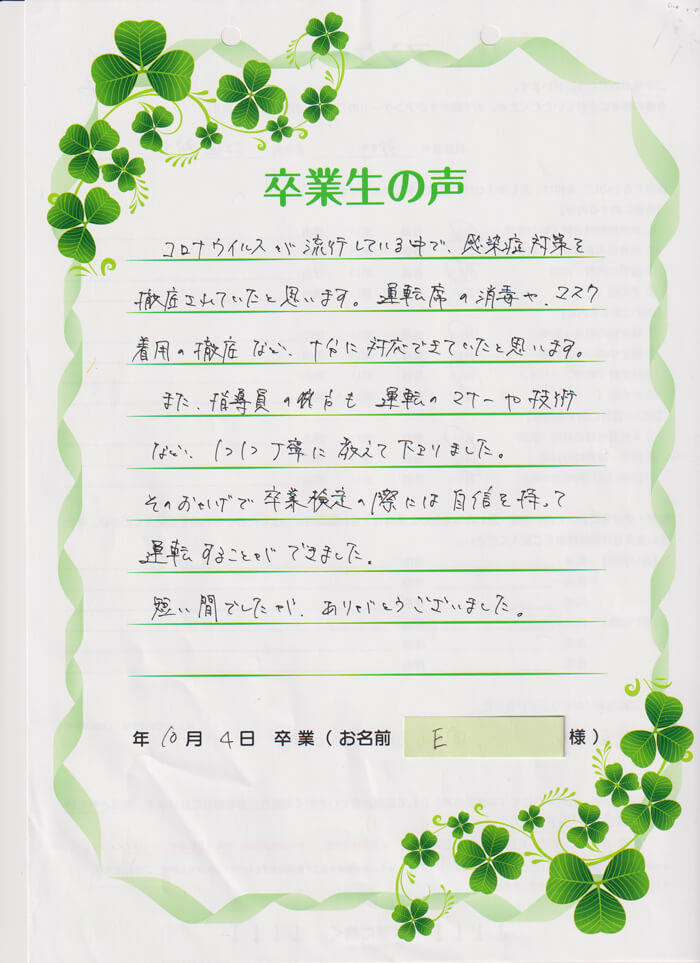 卒業生の声
コロナウイルスが流行している中で、感染症対策を
徹底されていたと思います。運転席の消毒や、マスク
着用の徹底など、十分に対応できていたと思います。
また、指導員の彼方も運転のマナーや技術
など、1つ1つ丁寧に教えて下さりました。
そのおかげで卒業検定の際には自信を持って
運転することができました。
短い間でしたが、ありがとうございました。
年 10月 4日 卒業（お名前 E 様）